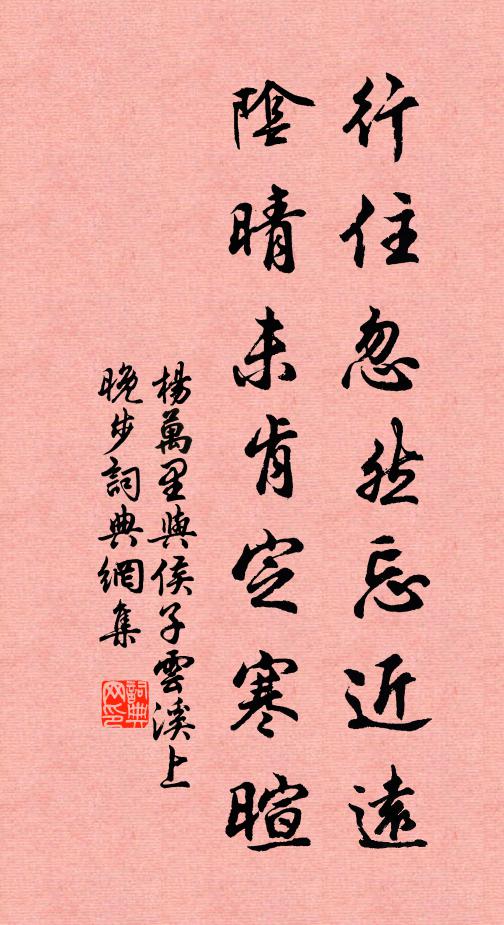 行住忽然忘近遠
陰晴未肯定寒暄
楊萬里與侯子雲溪上
晚步詞典網集
詞典
网印